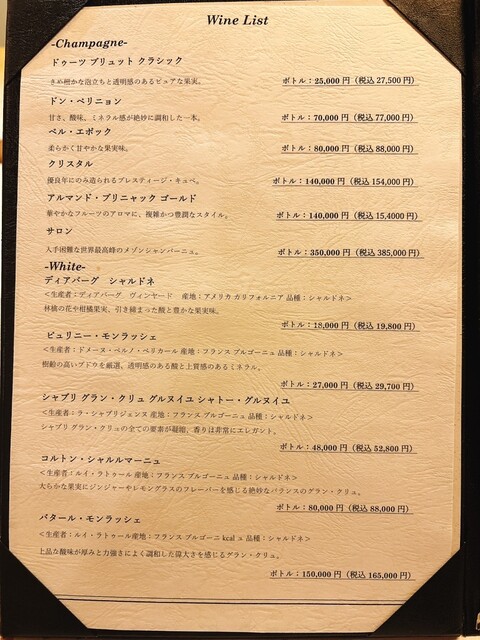 Wine List
-Champagne-
ドゥーツ ブリュット クラシック
きめ細かな泡立ちと透明感のあるピュアな果実。
ボトル：25,000 円（税込 27,500 円）
ドン・ペリニョン
甘さ、酸味、ミネラル感が絶妙に調和した一本。
ボトル：70,000 円（税込 77,000 円）
ベル・エポック
柔らかく甘やかな果実味。
ボトル：80,000 円（税込 88,000 円）
クリスタル
優良年にのみ造られるプレスティージ・キュベ。
ボトル：140,000 円（税込 154,000 円）
アルマンド・ブリニャック ゴールド
華やかなフルーツのアロマに、複雑かつ豊潤なスタイル。
ボトル：140,000 円（税込 15,4000 円）
サロン
入手困難な世界最高峰のメゾンシャンパーニュ。
ボトル：350,000 円（税込 385,000 円）
-White-
ディアバーグ　シャルドネ
＜生産者：ディアバーグ　ヴィンヤード　産地：アメリカ カリフォルニア 品種：シャルドネ＞
林檎の花や柑橘果実、引き締まった酸と豊かな果実味。
ボトル：18,000 円（税込 19,800 円）
ピュリニー・モンラッシェ
＜生産者：ドメーヌ・ペルノ・ベリカール 産地：フランス ブルゴーニュ 品種：シャルドネ＞
樹齢の高いブドウを厳選、透明感のある酸と上質感のあるミネラル。
ボトル：27,000 円（税込 29,700 円）
シャブリ グラン・クリュ グルヌイユ シャトー・グルヌイユ
＜生産者：ラ・シャブリジェンヌ 産地：フランス ブルゴーニュ 品種：シャルドネ＞
シャブリ グラン・クリュの全ての要素が凝縮、香りは非常にエレガント。
ボトル：48,000 円（税込 52,800 円）
コルトン・シャルルマーニュ
＜生産者：ルイ・ラトゥール 産地：フランス ブルゴーニュ 品種：シャルドネ＞
大らかな果実にジンジャーやレモングラスのフレーバーを感じる絶妙なバランスのグラン・クリュ。
ボトル：80,000 円（税込 88,000 円）
バタール・モンラッシェ
＜生産者：ルイ・ラトゥール産地：フランス ブルゴーニ kcal ュ 品種：シャルドネ＞
上品な酸味が厚みと力強さによく調和した偉大さを感じるグラン・クリュ。
ボトル：150,000 円（税込 165,000 円）